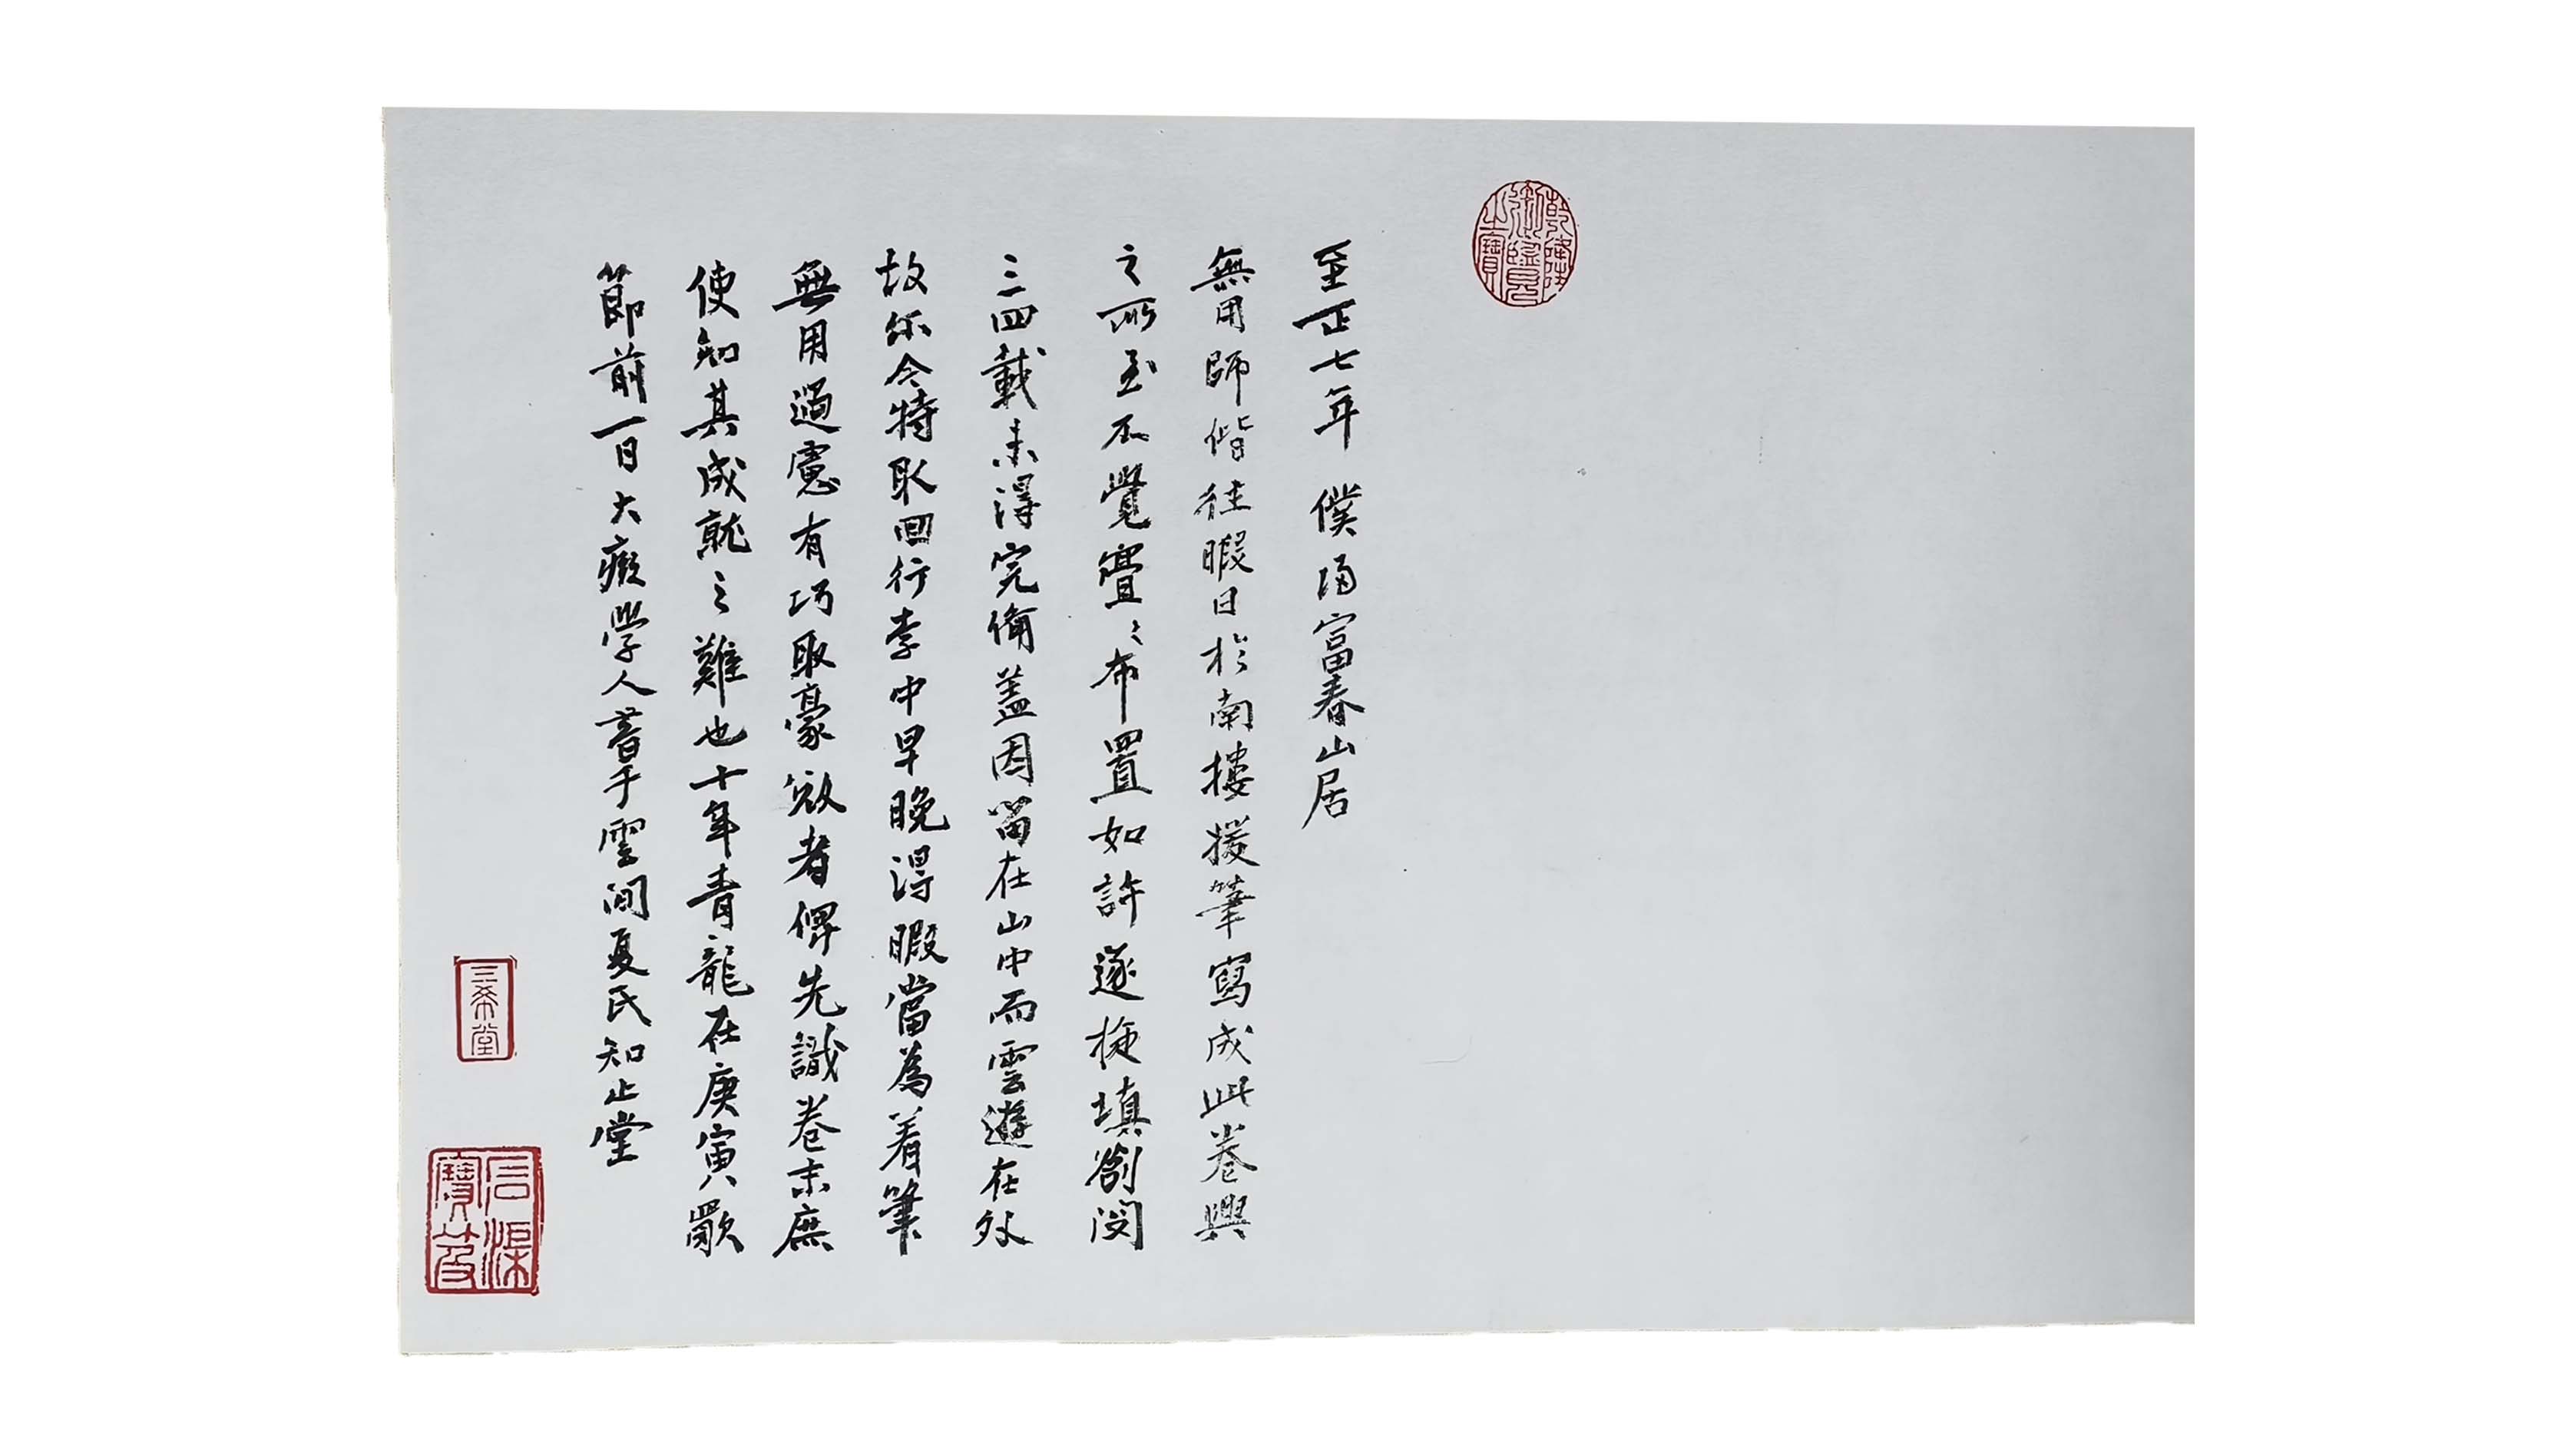 乾隆御覽之寶
至正七年 僕歸富春山居
無用師偕往暇日於南樓援筆寫成此卷興
之所至不覺亹〻布置如許逐旋填劄閱
三四載未得完備蓋因留在山中而雲遊在外
故尔今特取回行李中早晚得暇當為着筆
無用過慮有巧取豪敚者俾先識卷末庶
使知其成就之難也十年青龍在庚寅歜
節前一日大癡學人書于雲間夏氏知止堂
三希堂
石渠寶笈